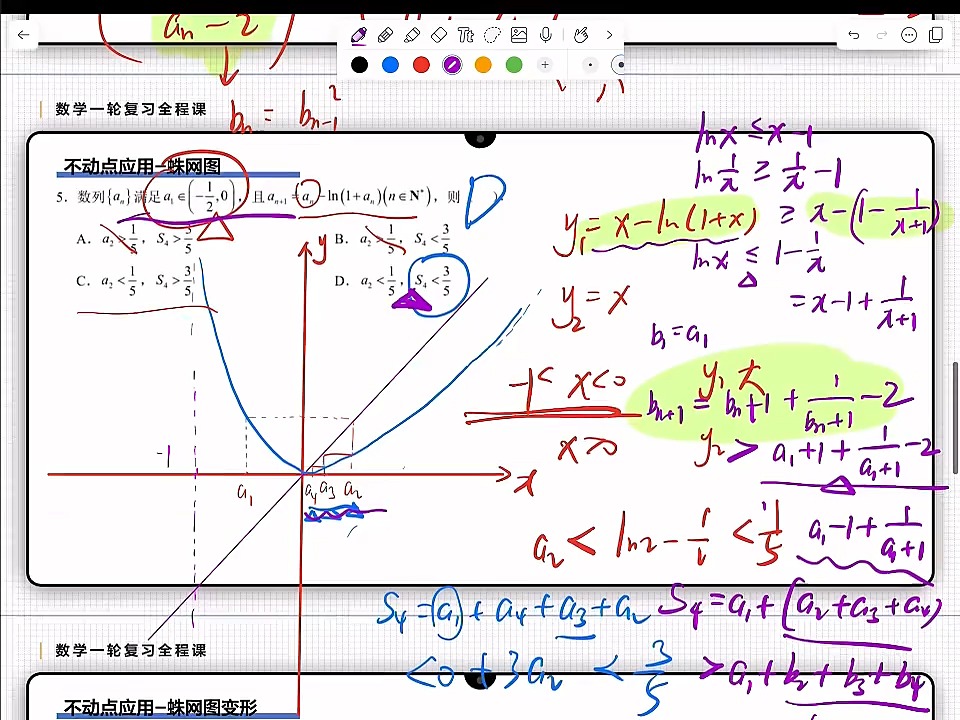 aₙ − 2
bₙ = bₙ₋₁²
数学一轮复习全程课
不动点应用–蛛网图
5. 数列{aₙ}满足a₁∈(−1/2,0), 且aₙ₊₁=aₙ−ln(1+aₙ)(n∈N*), 则 D )
A. a₂>1/5, S₄>3/5
B. a₂>1/5, S₄<3/5
C. a₂<1/5, S₄>3/5
D. a₂<1/5, S₄<3/5
lnx ≤ x−1
ln1/x ≥ 1/x −1
y₁= x−ln(1+x) ≥ x−(1−1/(x+1))
lnx ≤ 1−1/x
= x−1+1/(x+1)
y₂ = x
b₁=a₁
−1< x<0
y₁ 大
bₙ₊₁ = bₙ+1 + 1/(bₙ+1) −2
x>0
y₂
> a₁+1+1/(a₁+1) −2
a₂ < ln2− 1/1 < 1/5
a₁−1+1/(a₁+1)
y
x
-1
a₁
a₄ a₃ a₂
S₄=a₁+a₄+a₃+a₂
<0+3a₂ < 3/5
S₄=a₁+(a₂+a₃+a₄)
>a₁+b₂+b₃+b₄
数学一轮复习全程课
不动点应用–蛛网图变形